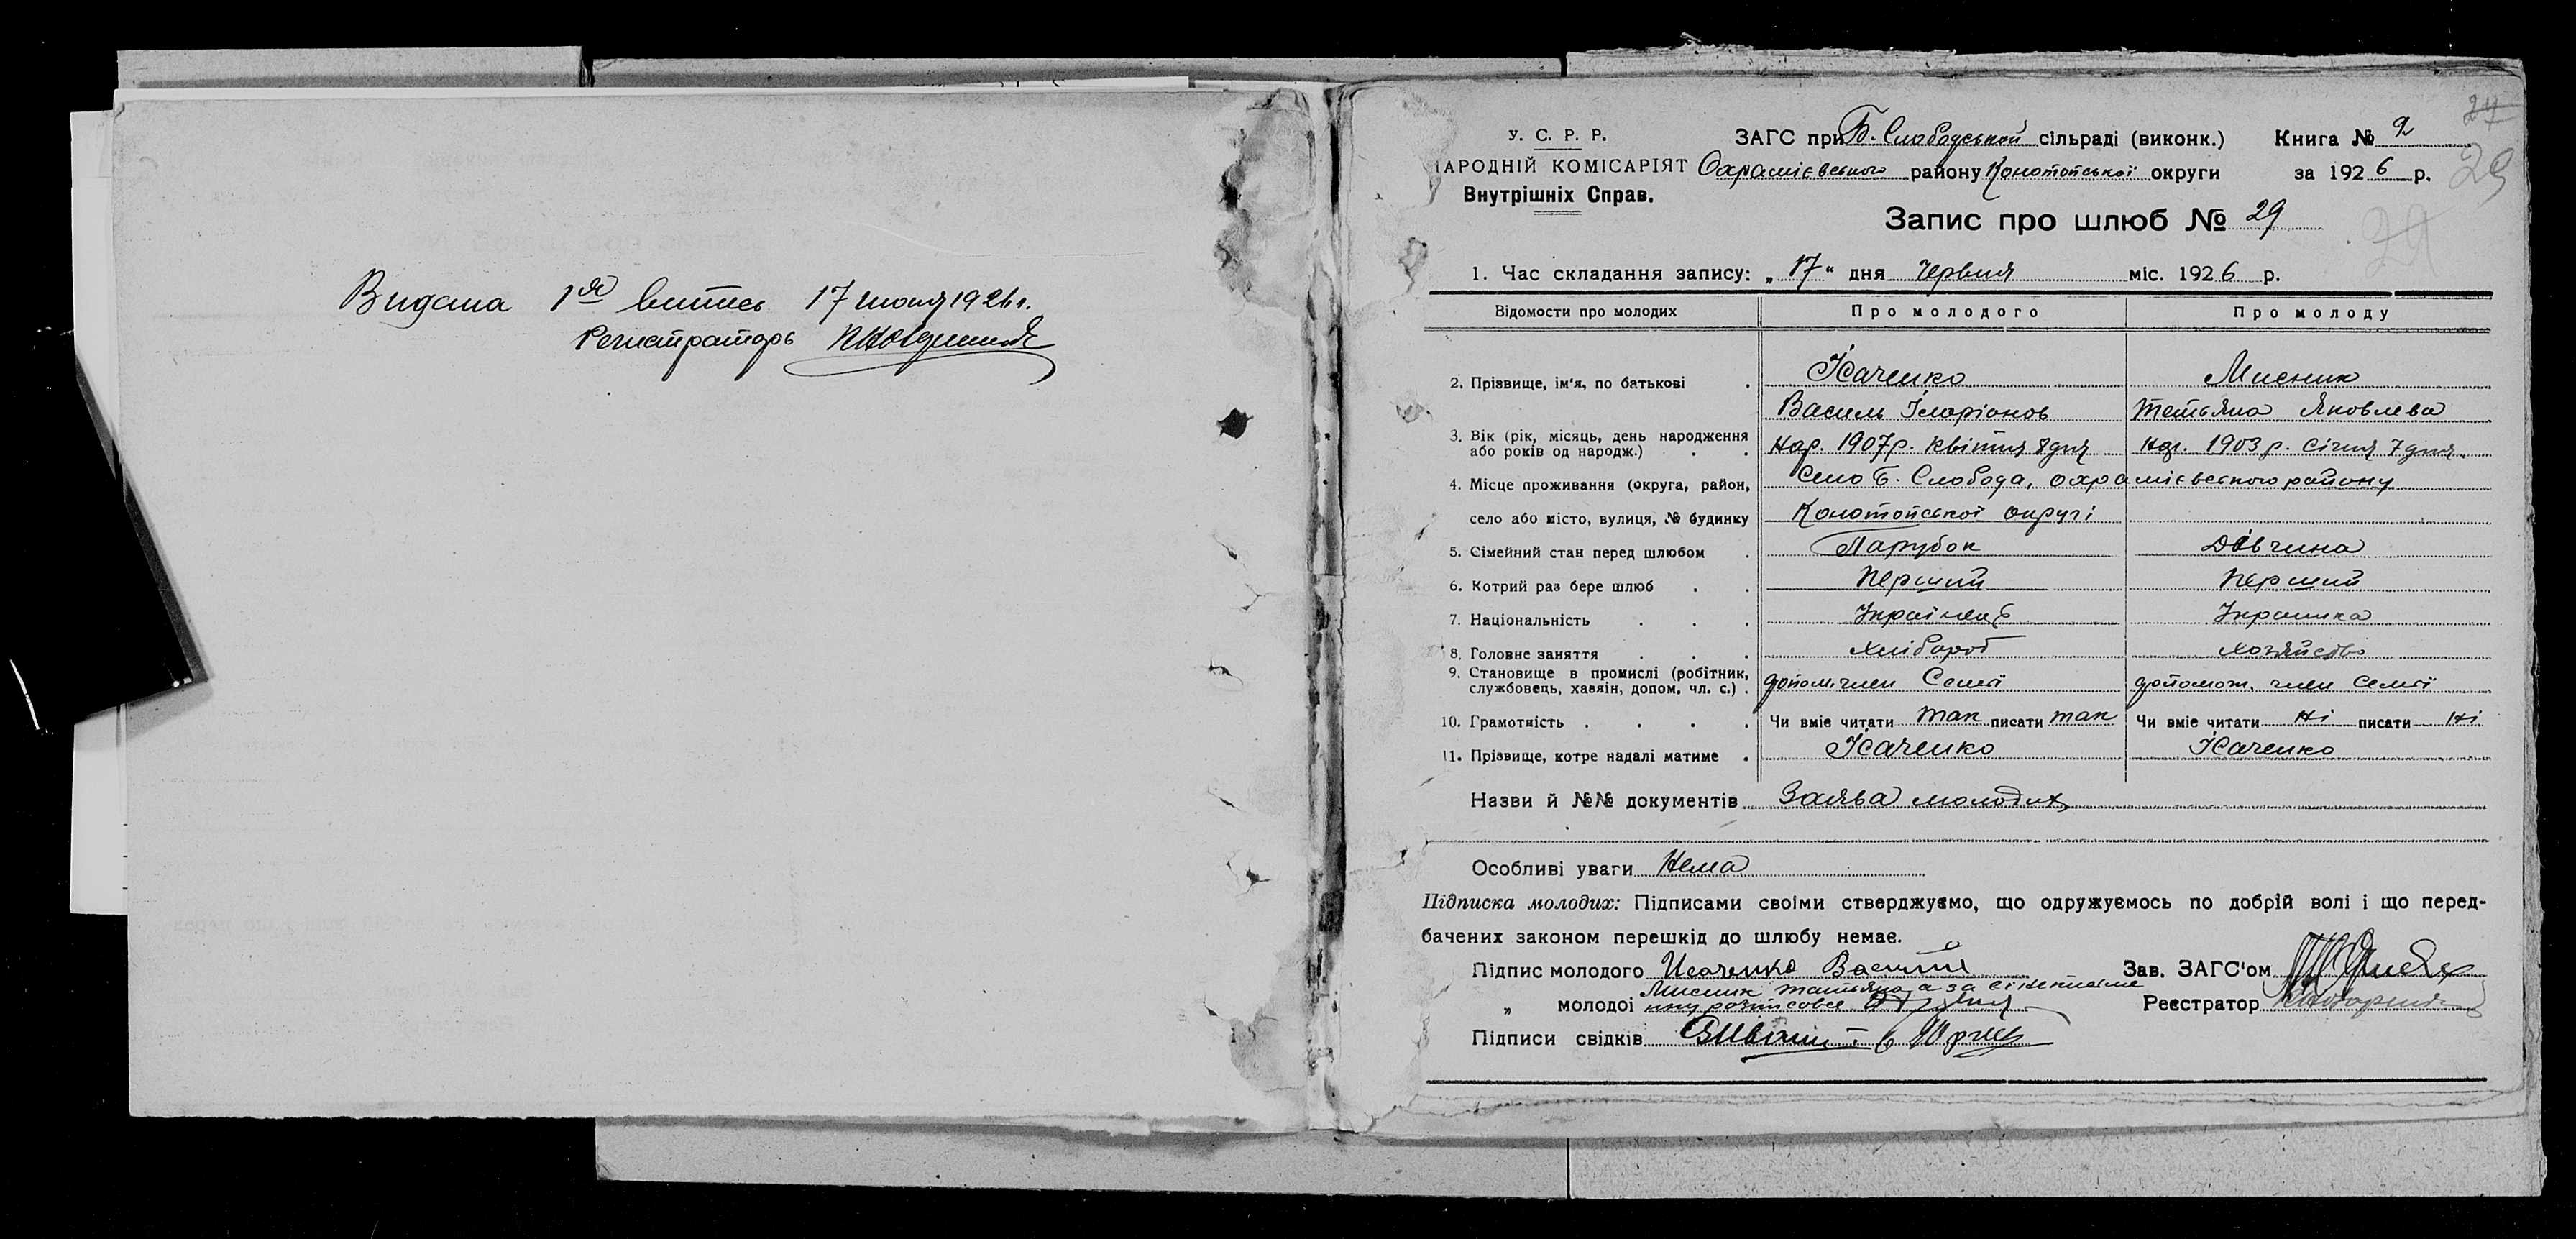 Видана 1ая випись 17 июня 1926 г.
Регистраторъ
24
29
29
У. С. Р. Р.
НАРОДНІЙ КОМІСАРІЯТ
Внутрішніх Справ.
ЗАГС при Б. Слободській сільраді (виконк.) Книга № 2
Охраміевського району Конотопської округи за 1926 р.
Запис про шлюб № 29
1. Час складання запису: „17“ дня Червня міс. 1926 р.
Відомости про молодих Про молодого Про молоду
2. Прізвище, ім'я, по батькові . Ісаченко Мисник
Василь Іларіонов Тетьяна Яковлева
3. Вік (рік, місяць, день народження або років од народж.) . . Нар. 1907 р. Квітня 8 дня Нар. 1903 р. Січня 7 дня
4. Місце проживання (округа, район, Село Б. Слобода, Охраміевського району
село або місто, вулиця, № будинку Конотопської округі
5. Сімейний стан перед шлюбом . Парубок Дівчина
6. Котрий раз бере шлюб . . Перший Перший
7. Національність . . . Українець Украинка
8. Головне заняття . . . Хлібороб Хозяйство
9. Становище в промислі (робітник, службовець, хазяін, допом. чл. с.) . допом. член Семії допомож. член семії
10. Грамотність . . . . Чи вміє читати так писати так Чи вміє читати Ні писати Ні
11. Прізвище, котре надалі матиме . Ісаченко Ісаченко
Назви й №№ документів Заява молодих
Особливі уваги Нема
Підписка молодих: Підписами своїми стверджуємо, що одружуємось по добрій волі і що перед-
бачених законом перешкід до шлюбу немає.
Підпис молодого Исаченко Василий Зав. ЗАГС'ом
Мисник Татьяна а за її неписьме
„ молодої нну розписовсе Реєстратор
Підписи свідків